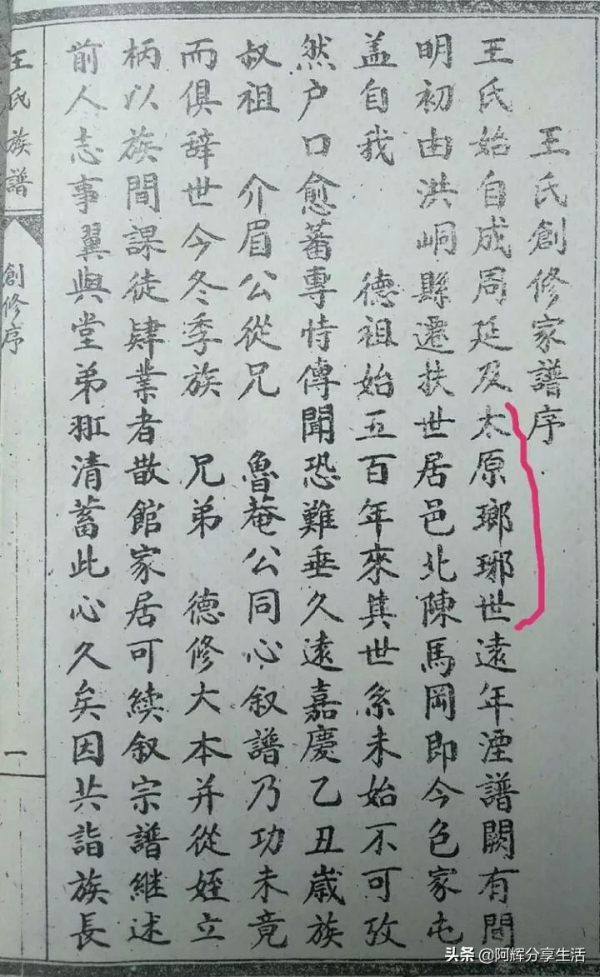 王氏創修家譜序
王氏始自成周延及太原瑯琊世遠年湮譜闕有間
明初由洪峒縣遷扶世居邑北陳馬岡即今色家屯
盖自我　德祖始五百年來其世系未始不可攷
然户口愈蕃專恃傳聞恐難垂久遠嘉慶乙丑歲族
叔祖　介眉公從兄　魯菴公同心叙譜乃功未竟
而俱辞世今冬季族　兄弟　德修大本并從姪立
柄以族間課徒肄業者散館家居可續叙宗譜継述
前人志事翼與堂弟羾清蓄此心久矣因共詣族長
王氏族譜
創修序
一
头条 @阿辉分享生活